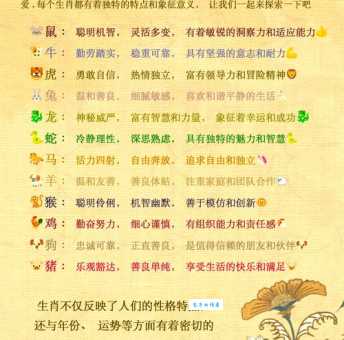 爱,每个生肖都有着独特的特点和象征意义, 让我们一起来探索一下吧
鼠： 聪明机智, 灵活多变, 有着敏锐的洞察力和适应能力
牛： 勤劳踏实, 稳重可靠, 具有坚强的意志和耐力
虎： 勇敢自信, 热情独立, 富有领导力和冒险精神
兔： 温和善良, 细腻敏感, 喜欢和谐平静的生活
龙： 神秘威严, 富有智慧和力量, 象征着幸运和成功
蛇： 冷静理性, 深思熟虑, 具有独特的魅力和智慧
马： 活力四射, 自由奔放, 追求自由和独立
羊： 温和友善, 善良体贴, 注重家庭和团队合作
猴： 聪明伶俐, 机智幽默, 善于模仿和创新
鸡： 勤奋努力, 细心谨慎, 有组织能力和责任感
狗： 忠诚可靠, 正直善良, 是值得信赖的朋友和伙伴
猪： 乐观豁达, 善良单纯, 享受生活的快乐和满足
生肖不仅反映了人们的性格特
还与年份、 运势等方面有着密切的